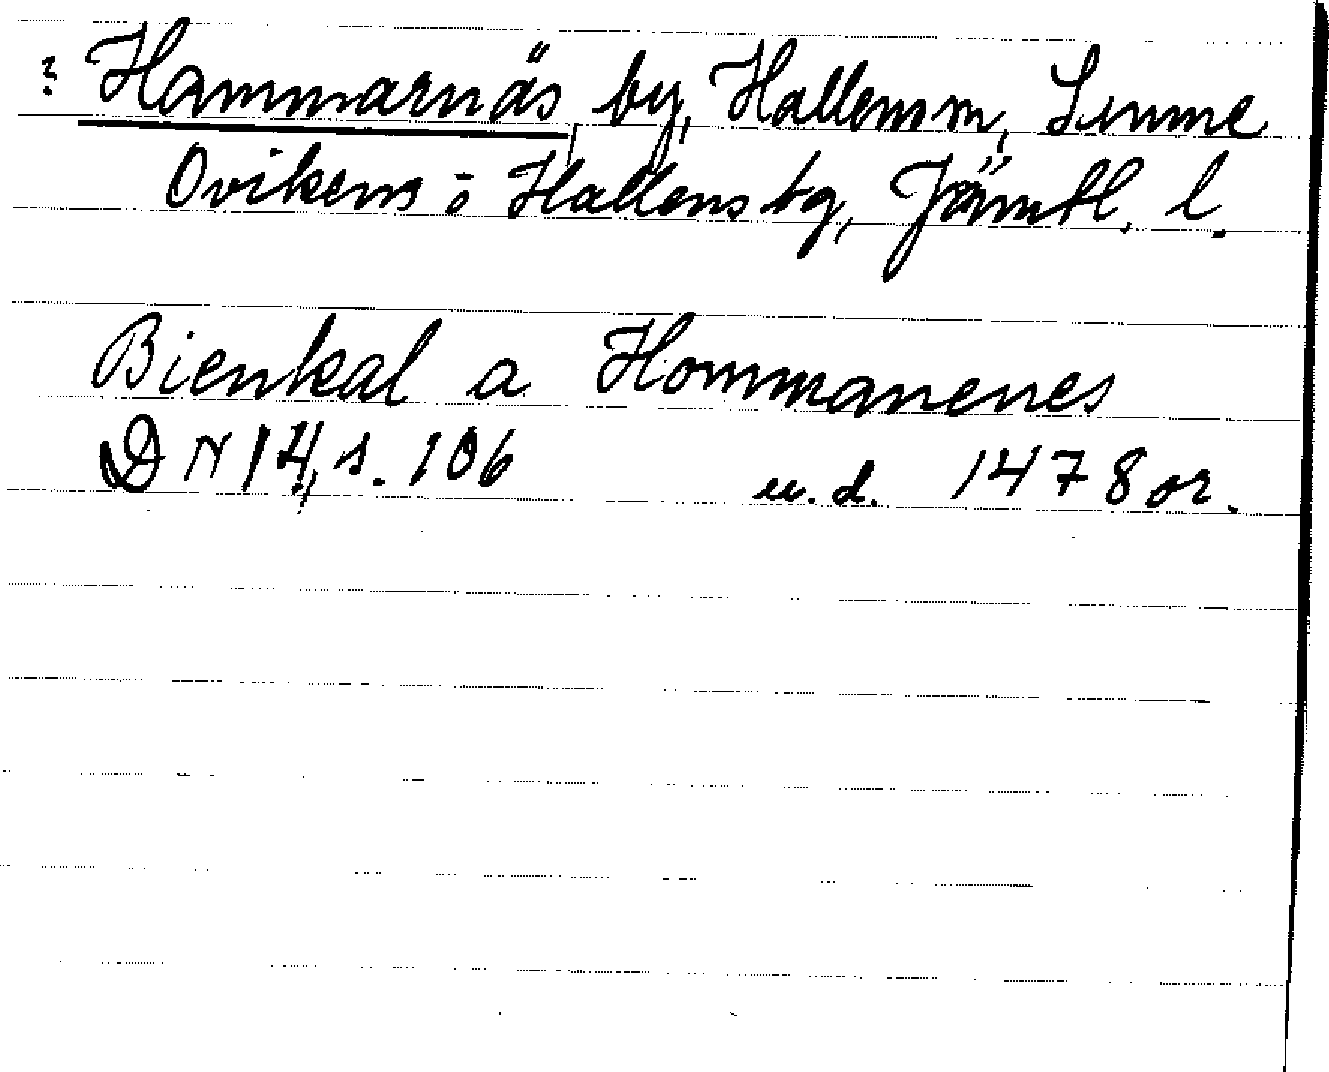 ? Hammarnäs by, Hallens sn, Sunne
Ovikens o Hallens tg, Jämtl. l.
Bienkal a Hommanenes
DN 14, s. 106 u.d. 1478 or.